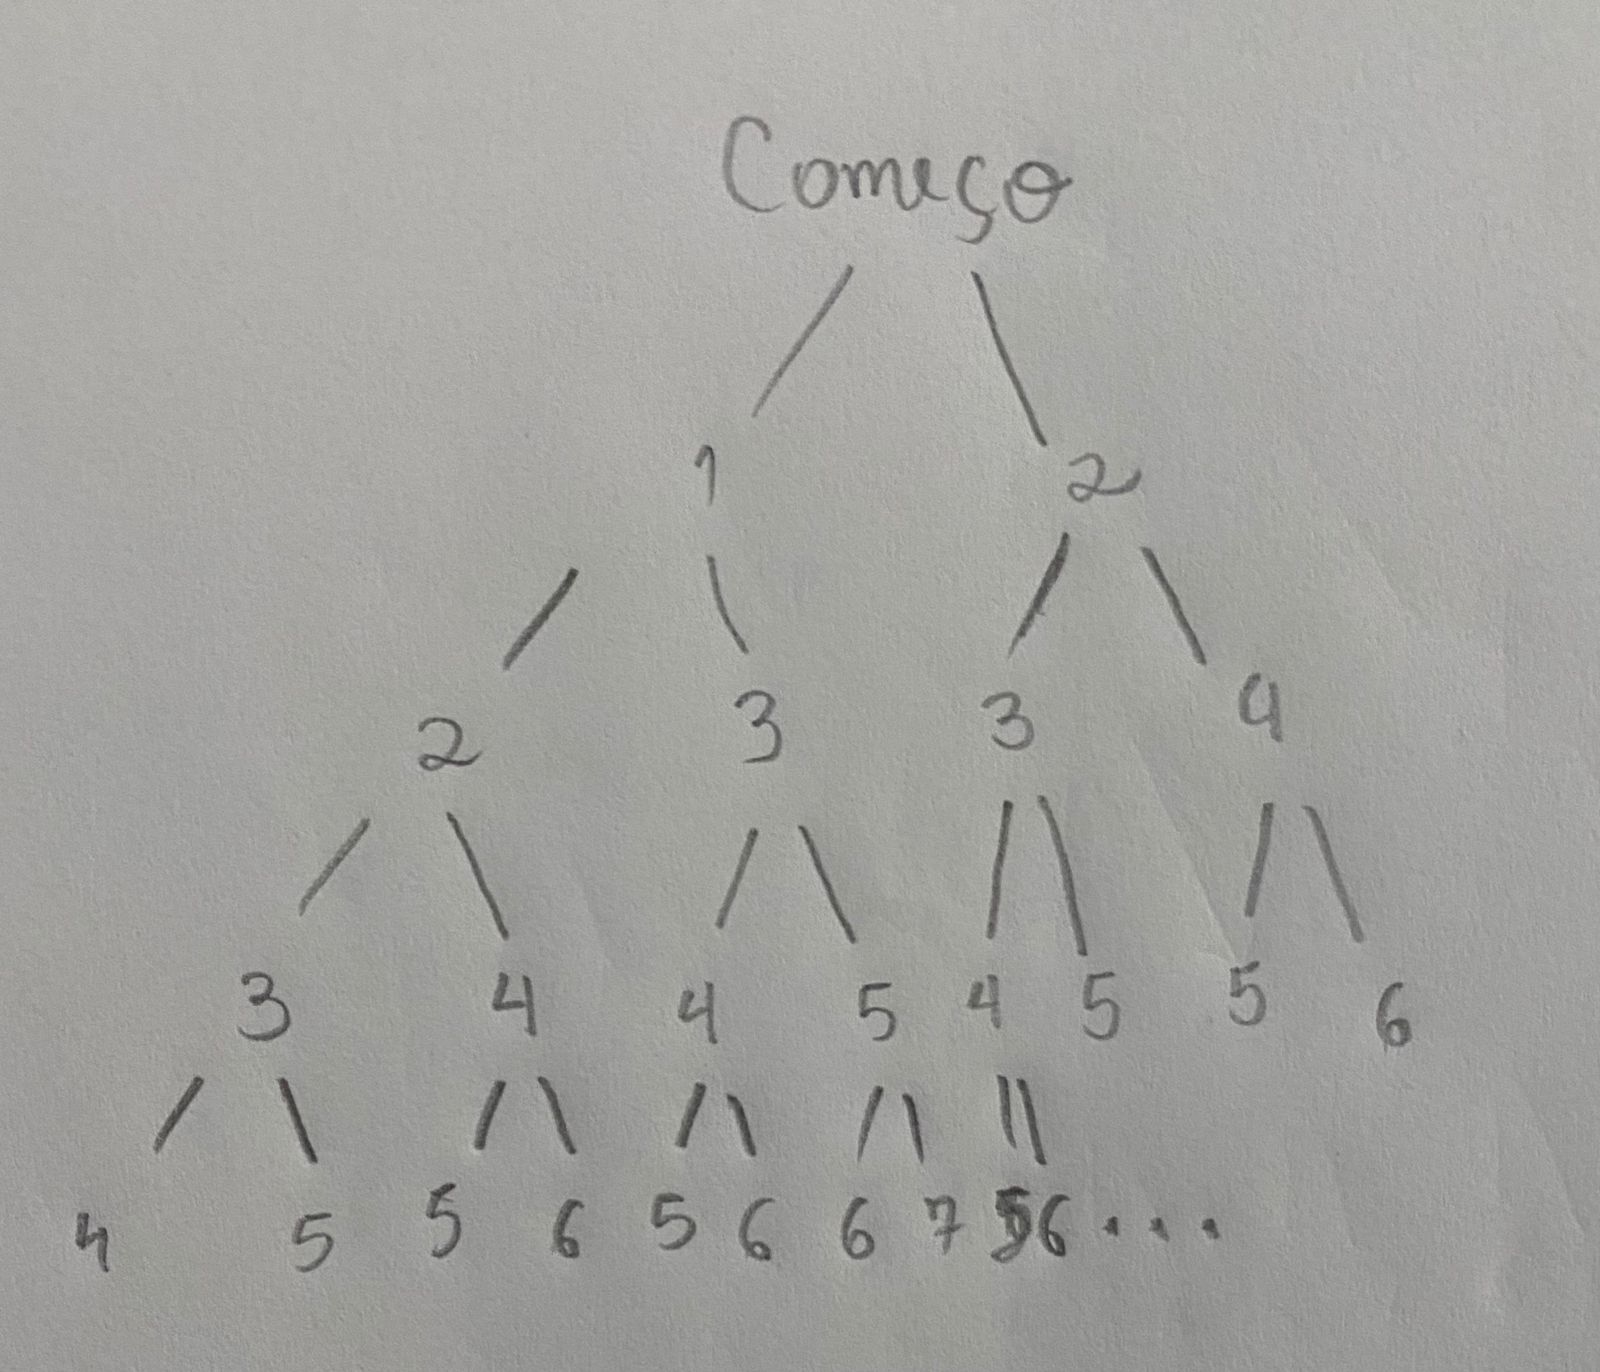 Começo
1 2
2 3 3 4
3 4 4 5 4 5 5 6
4 5 5 6 5 6 6 7 5 6 ...